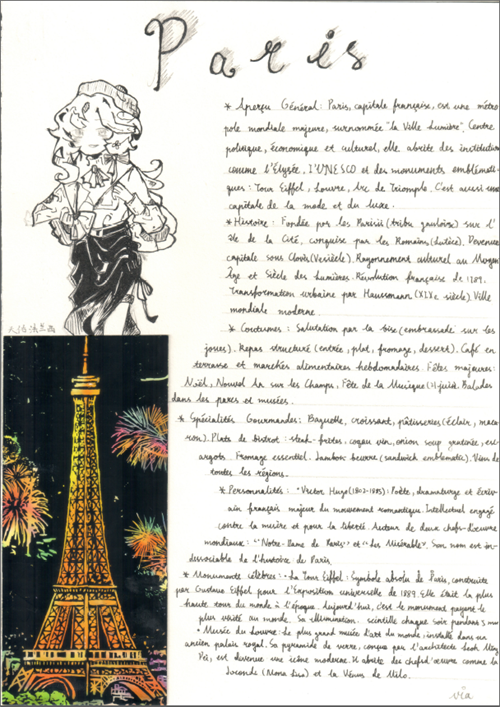 Paris
* Aperçu Général: Paris, capitale française, est une métro
pole mondiale majeure, surnommée "la Ville Lumière". Centre
politique, économique et culturel, elle abrite des institution
comme l'Élysée, l'UNESCO et des monuments emblémati-
ques: Tour Eiffel, Louvre, Arc de Triomphe. C'est aussi une
capitale de la mode et du luxe.
* Histoire: Fondée par les Parisii (tribu gauloise) sur l'
île de la Cité, conquise par les Romains (Lutèce). Devenue
capitale sous Clovis (Ve siècle). Rayonnement culturel au Moyen
Âge et Siècle des Lumières. Révolution française de 1789.
Transformation urbaine par Haussmann (XIXe siècle). Ville
mondiale moderne.
* Coutumes: Salutation par la bise (embrassade sur les
joues). Repas structuré (entrée, plat, fromage, dessert). Café en
terrasse et marchés alimentaires hebdomadaires. Fêtes majeures:
Noël, Nouvel An sur les Champs, Fête de la Musique (21 juin). Balades
dans les parcs et musées.
* Spécialités Gourmandes: Baguette, croissant, pâtisseries (éclair, maca
ron). Plats de bistrot: steak-frites, coq au vin, onion soup gratinée, esc
argots. Fromage essentiel. Jambon beurre (sandwich emblématic). Vins de
toutes les régions.
* Personnalités: • Victor Hugo (1802-1885): Poète, dramaturge et écriv
ain français majeur du mouvement romantique. Intellectuel engagé
contre la misère et pour la liberté. Auteur de deux chefs-d'œuvre
mondiaux: "Notre-Dame de Paris" et "Les Misérables". Son nom est in-
dissociable de l'histoire de Paris.
* Monuments célèbres: • La Tour Eiffel: Symbole absolu de Paris, construite
par Gustave Eiffel pour l'Exposition universelle de 1889. Elle était la plus
haute tour du monde à l'époque. Aujourd'hui, c'est le monument payant le
plus visité au monde. Sa illumination scintille chaque soir pendant 5 min
• Musée du Louvre: Le plus grand musée d'art du monde, installé dans un
ancien palais royal. Sa pyramide de verre, conçue par l'architecte Ieoh Ming
Pei, est devenue une icône moderne. Il abrite des chefs-d'œuvre comme la
Joconde (Mona Lisa) et la Vénus de Milo.
via